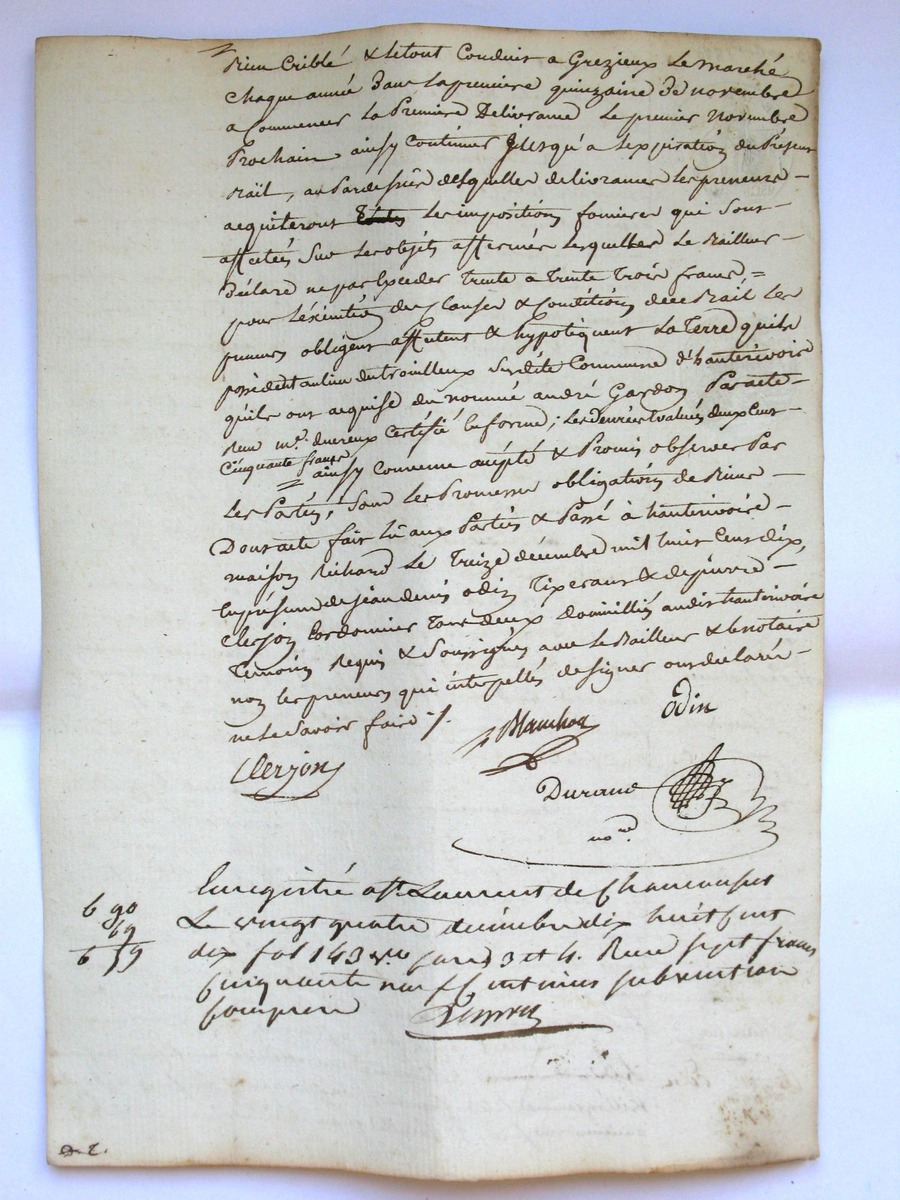 Bien Criblé & le tout Conduit a Grezieux Le marché
Chaque année dans la premiere quinzaine de novembre
a Commencer La Premiere Délivrance Le premier Novembre
Prochain ainsy Continuer Jusqu'a Lexpiration du Présent
Bail, au Par dessus desquelles delivrances les preneurs
acquiteront Les impositions foncieres qui Sont
affectées Sur Les objets affermés Lesquelles Le Bailleur
Déclare ne pas Exceder Trente a Trente Trois francs =
pour L'éxécution des Clauses & Conditions de ce Bail Les
preneurs obligent affectent & hypotiquent La Terre quils
possedent au lieu du trouilleux Susdite Commune d'hauterivoire
quils ont acquise du nommé andré Gardon Par acte
Reçu me. ducreux Certifié En forme; Les denrées Evaluées deux Cent
Cinquante francs
= ainsy Convenu accepté & Promis observer Par
Les Parties, Sous Les Promesses obligations de Biens
Dont acte fait Lû aux Parties & Passé à hauterivoire
maison Richard Le Treize décembre mil huit Cent dix,
En présence de jean denis odin Tixerant & de pierre
Clerjon Cordonnier Tous deux domiciliés audit hauterivoire
Temoins Requis & Soussignés avec Le Bailleur & le notaire
non les preneurs qui interpellés de signer ont declarés
ne Le Savoir faire ./.
Odin
Clerjon
Durand
no.re
Enregistré a St. Laurent de Chamousset
Le vingt quatre décembre dix huit Cent
dix fol 143 vo. Cases 3 et 4. Reçu sept francs
Cinquante neuf Centimes subvention
Comprise
6 90
69